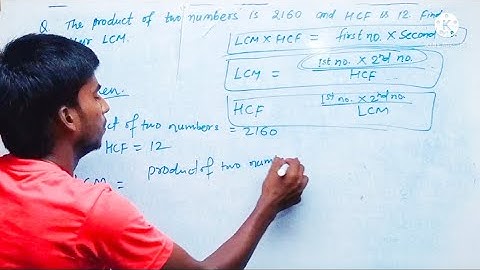 Q. The product of two numbers is 2160 and HCF is 12. Find
LCM.
LCM X HCF = first no. X Second
LCM = 1st no. X 2nd no.
HCF
HCF 1st no. X 2nd no.
LCM
of two numbers = 2160
HCF = 12
= product of two num